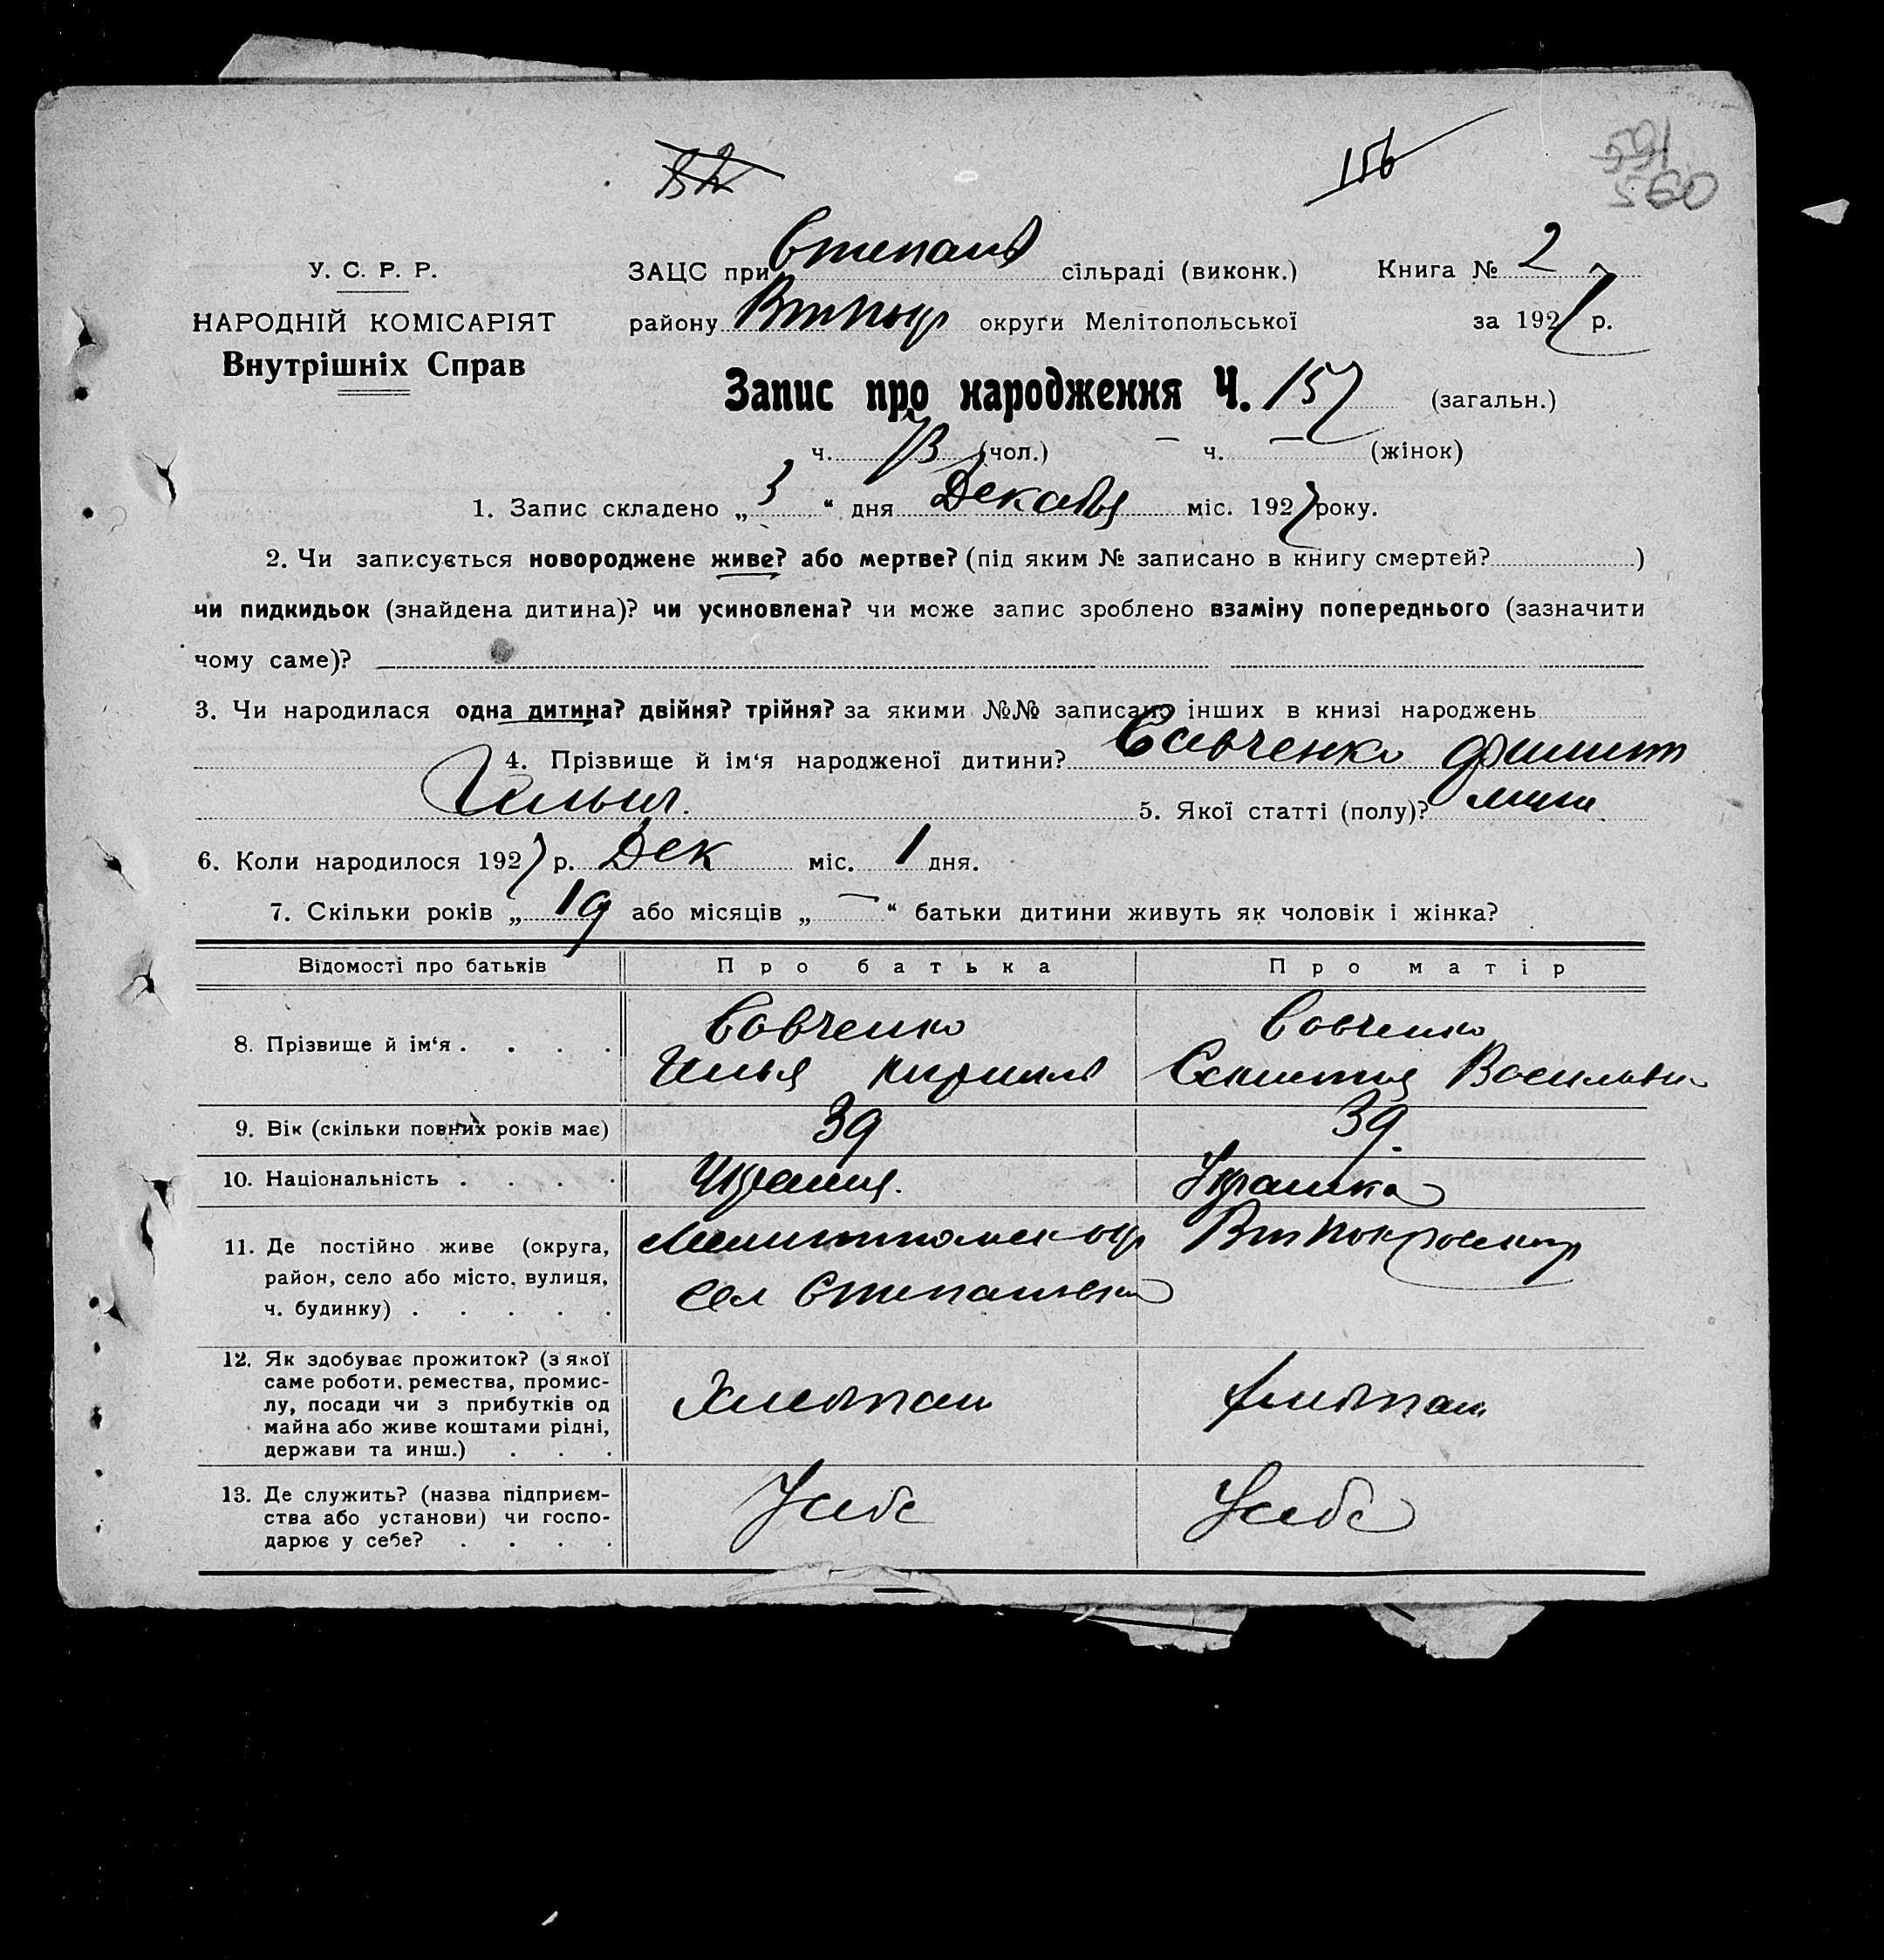 156
591
560
ЗАЦС при Степанов сільраді (виконк.) Книга № 2
У. С. Р. Р.
району округи Мелітопольської за 1927 р.
НАРОДНІЙ КОМІСАРІЯТ
Внутрішніх Справ
Запис про народження Ч. 157 (загальн.)
ч. (чол.) — ч. — (жінок)
1. Запис складено „ 3 “ дня Декабря міс. 1927 року.
2. Чи записується новороджене живе? або мертве? (під яким № записано в книгу смертей? )
чи пидкидьок (знайдена дитина)? чи усиновлена? чи може запис зроблено взаміну попереднього (зазначити
чому саме)?
3. Чи народилася одна дитина? двійня? трійня? за якими №№ записано інших в книзі народжень
4. Прізвище й ім‘я народженої дитини? Савченко Филипп
Ильич. 5. Якої статті (полу)? муж
6. Коли народилося 1927 р. Дек міс. 1 дня.
7. Скільки років „ 19 або місяців „ — “ батьки дитини живуть як чоловік і жінка?
Відомості про батьків Про батька Про матір
8. Прізвище й ім‘я . . . . Савченко Савченко
Илья Кирилов Васильев
9. Вік (скільки повних років має) 39 39
10. Національність . . . . Украинка
11. Де постійно живе (округа, Мелитопольск окр Вт Покровск р
район, село або місто, вулиця, Сел Степановка
ч. будинку) . . . . .
12. Як здобуває прожиток? (з якої
саме роботи, ремества, промис-
лу, посади чи з прибутків од Хлебопаш Хлебопаш
майна або живе коштами рідні,
держави та инш.) . . .
13. Де служить? (назва підприєм- У себе У себе
ства або установи) чи госпо-
дарює у себе? . . . .